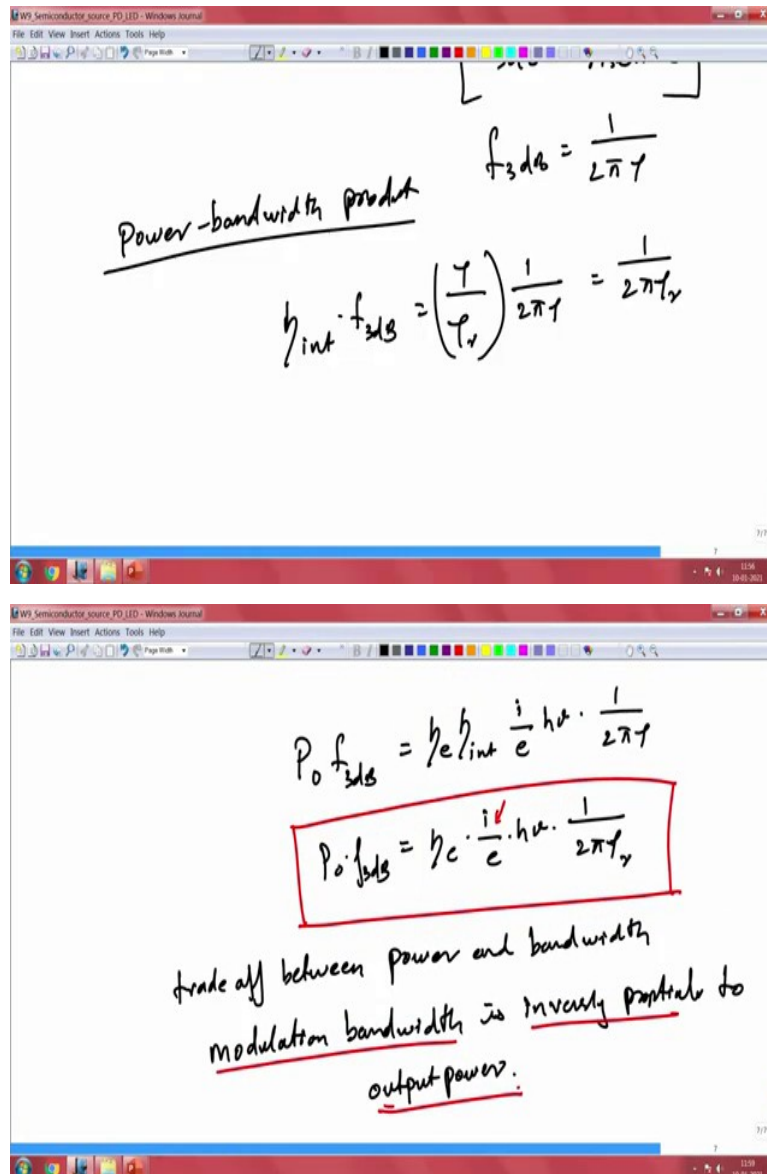 W9_Semiconductor_source_PD_LED - Windows Journal
File Edit View Insert Actions Tools Help
Page Width
f_3dB = 1/2πτ
Power-bandwidth product
η_int · f_3dB = (τ/τ_r) 1/2πτ = 1/2πτ_r
7/7
7
11:56
10-01-2021
W9_Semiconductor_source_PD_LED - Windows Journal
File Edit View Insert Actions Tools Help
Page Width
P_0 f_3dB = η_e η_int i/e hν · 1/2πτ
P_0 · f_3dB = η_e · i/e · hν · 1/2πτ_r
trade off between power and bandwidth
modulation bandwidth is inversly proptial to
output power.
7/7
7
11:59
10-01-2021